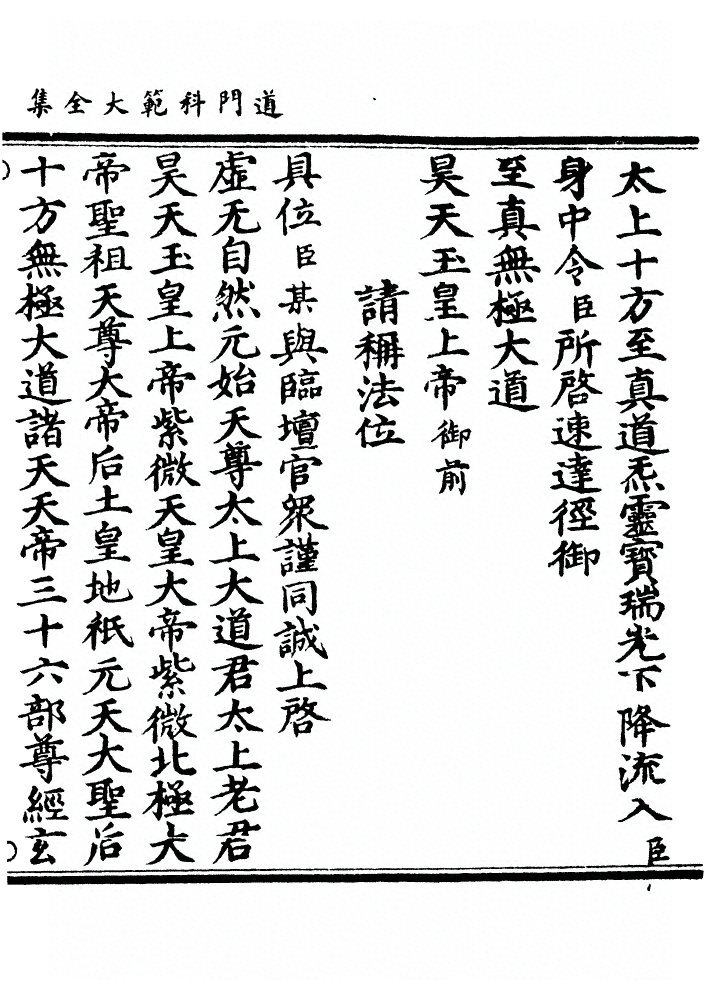 道門科範大全集
太上十方至真道炁靈寶瑞光下降流入臣
身中令臣所啓速達徑御
至真無極大道
昊天玉皇上帝御前
請稱法位
具位臣某與臨壇官眾謹同誠上啓
虛无自然元始天尊太上大道君太上老君
昊天玉皇上帝紫微天皇大帝紫微北極大
帝聖祖天尊大帝后土皇地祇元天大聖后
十方無極大道諸天天帝三十六部尊經玄